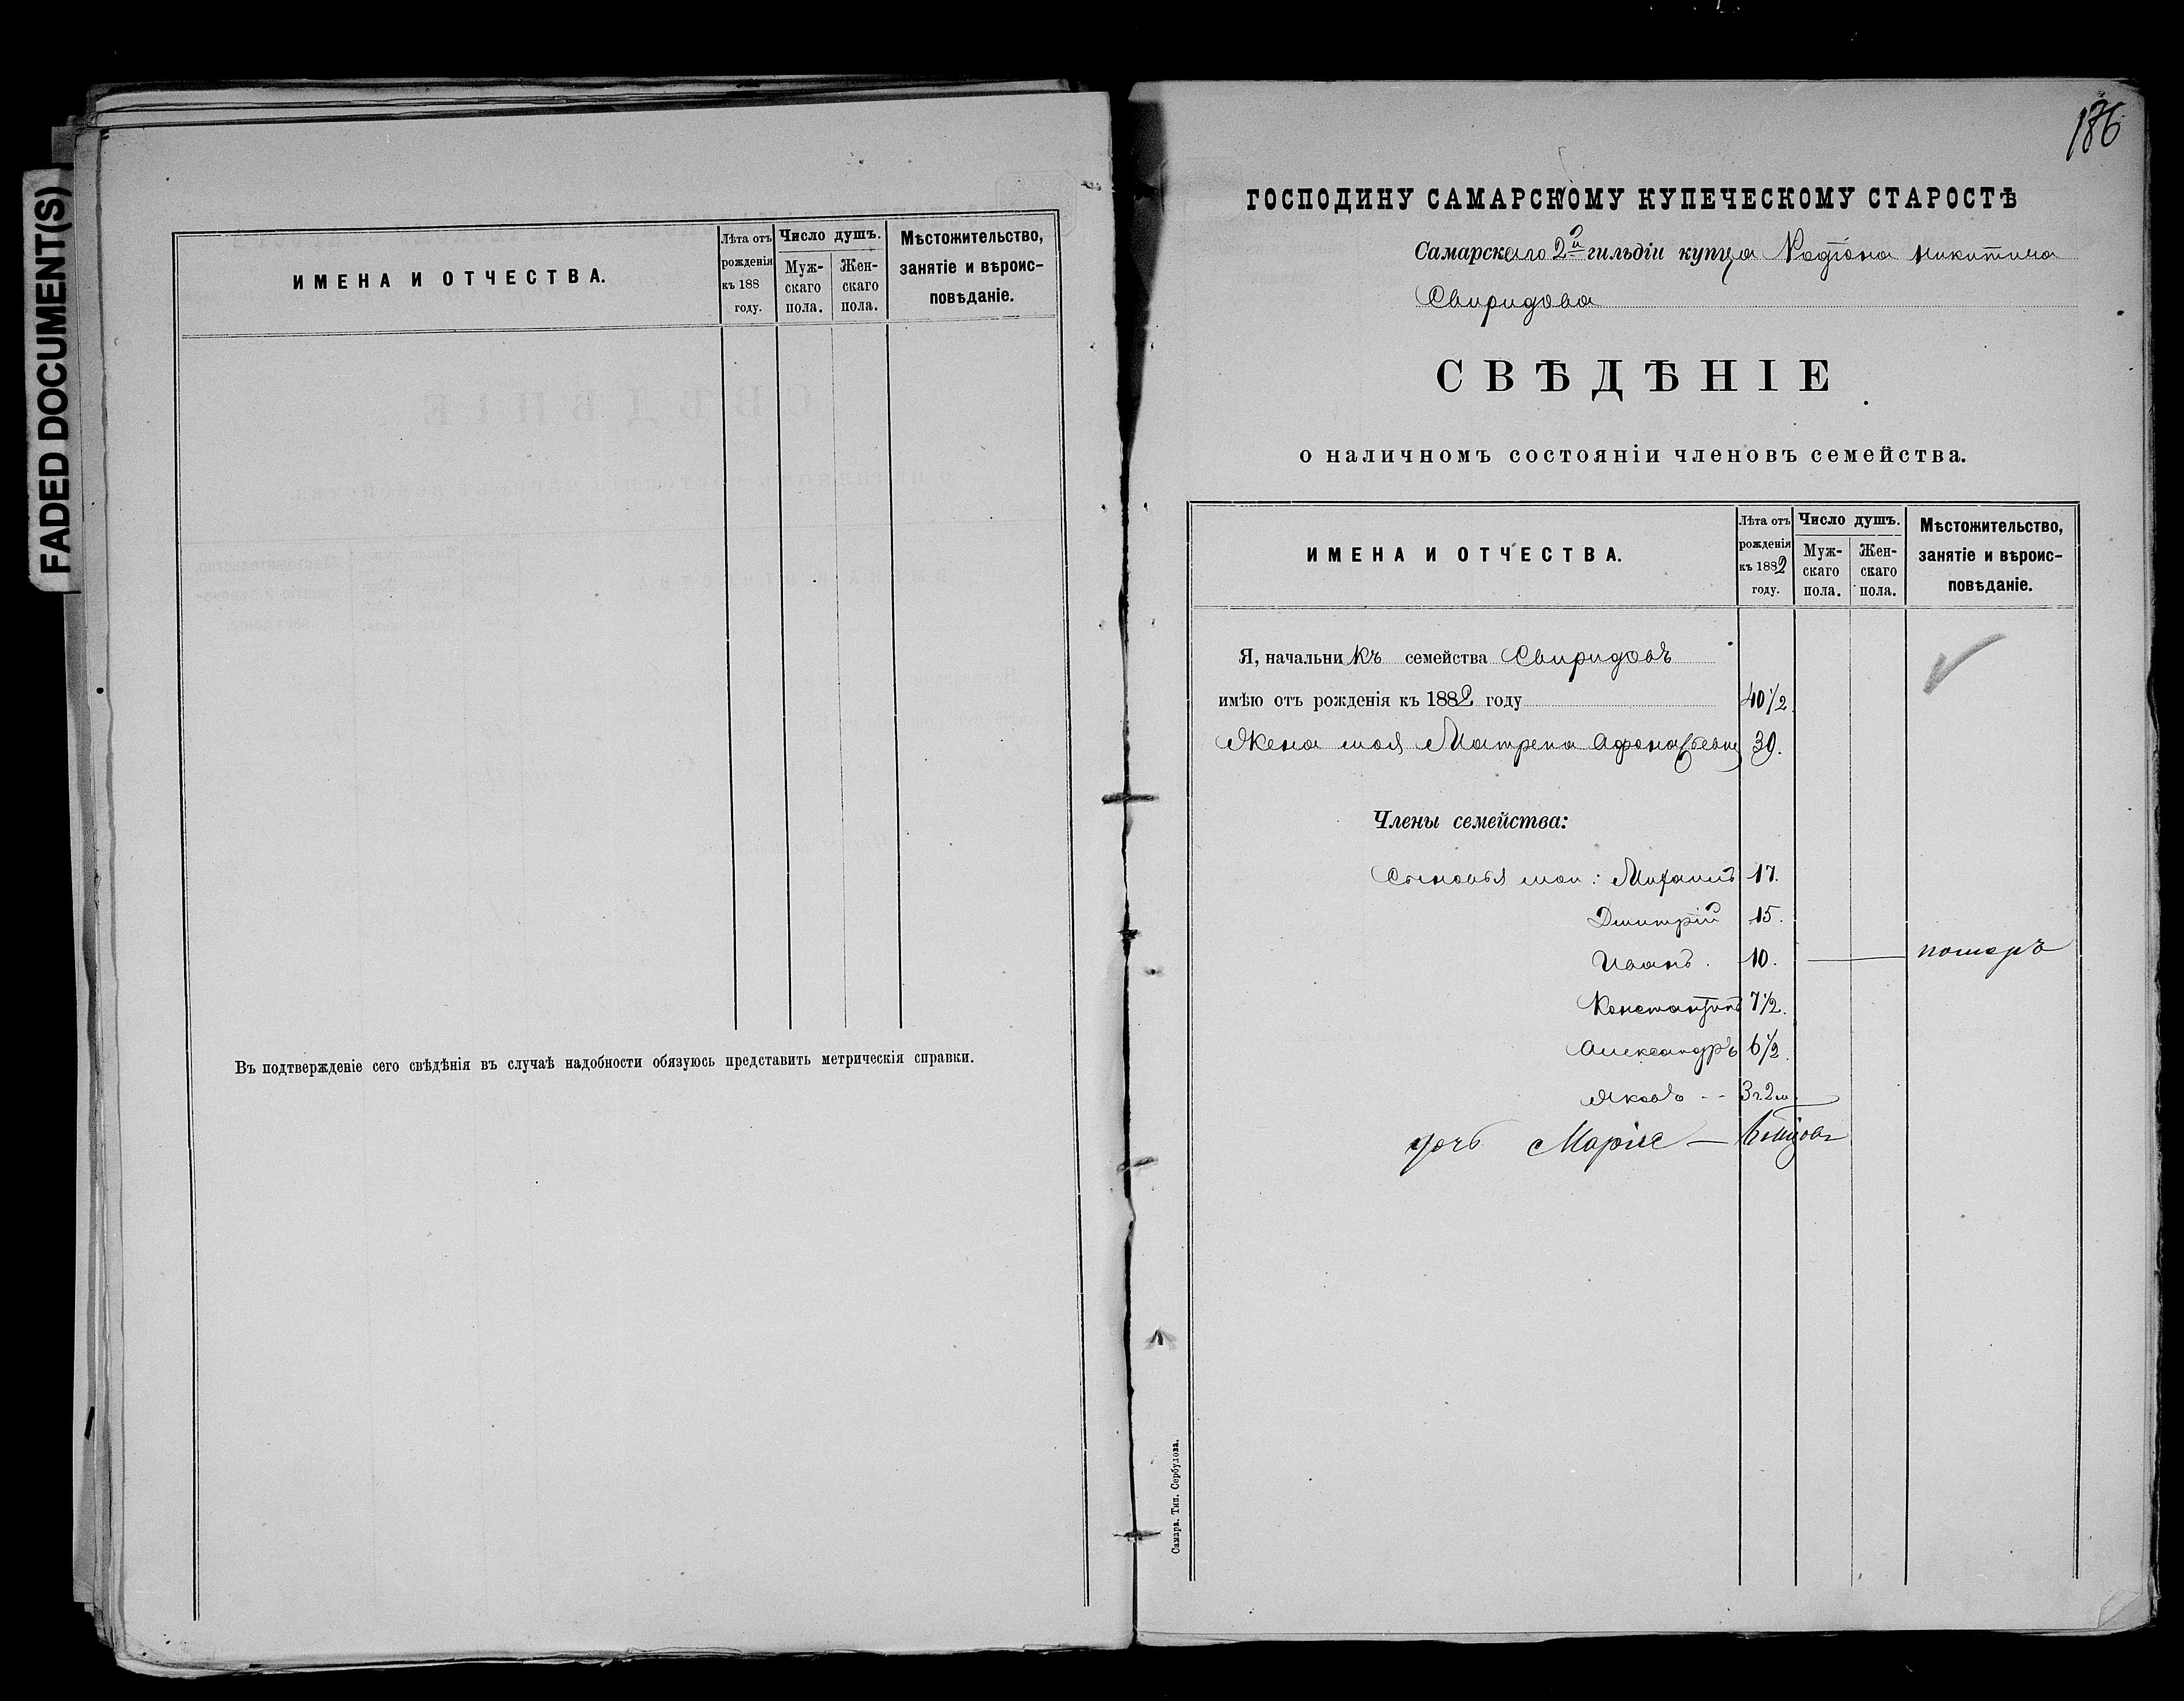 FADED DOCUMENT(S)
ИМЕНА И ОТЧЕСТВА.
Лѣта отъ рожденія къ 188 году.
Число душъ.
Мужскаго пола.
Женскаго пола.
Мѣстожительство, занятіе и вѣроисповѣданіе.
Въ подтвержденіе сего свѣдѣнія въ случаѣ надобности обязуюсь представить метрическія справки.
186
ГОСПОДИНУ САМАРСКОМУ КУПЕЧЕСКОМУ СТАРОСТѢ
Самарскаго 2й гильдіи купца Родіона Никитича
Свиридова
СВѢДѢНІЕ
о наличномъ состояніи членовъ семейства.
ИМЕНА И ОТЧЕСТВА.
Лѣта отъ рожденія къ 1882 году.
Число душъ.
Мужскаго пола.
Женскаго пола.
Мѣстожительство, занятіе и вѣроисповѣданіе.
Я, начальникъ семейства Свиридовъ
имѣю отъ рожденія къ 1882 году 40 1/2
Жена моя Матрена Афонасьевна 39.
Члены семейства:
Сыновья мои: Михаилъ 17.
Дмитрій 15.
Иванъ. 10. — померъ
Константинъ 7 1/2.
Александръ 6 1/2.
Яковъ -- 3 г. 2 м
дочь Марія —
Самара. Тип. Сербулова.